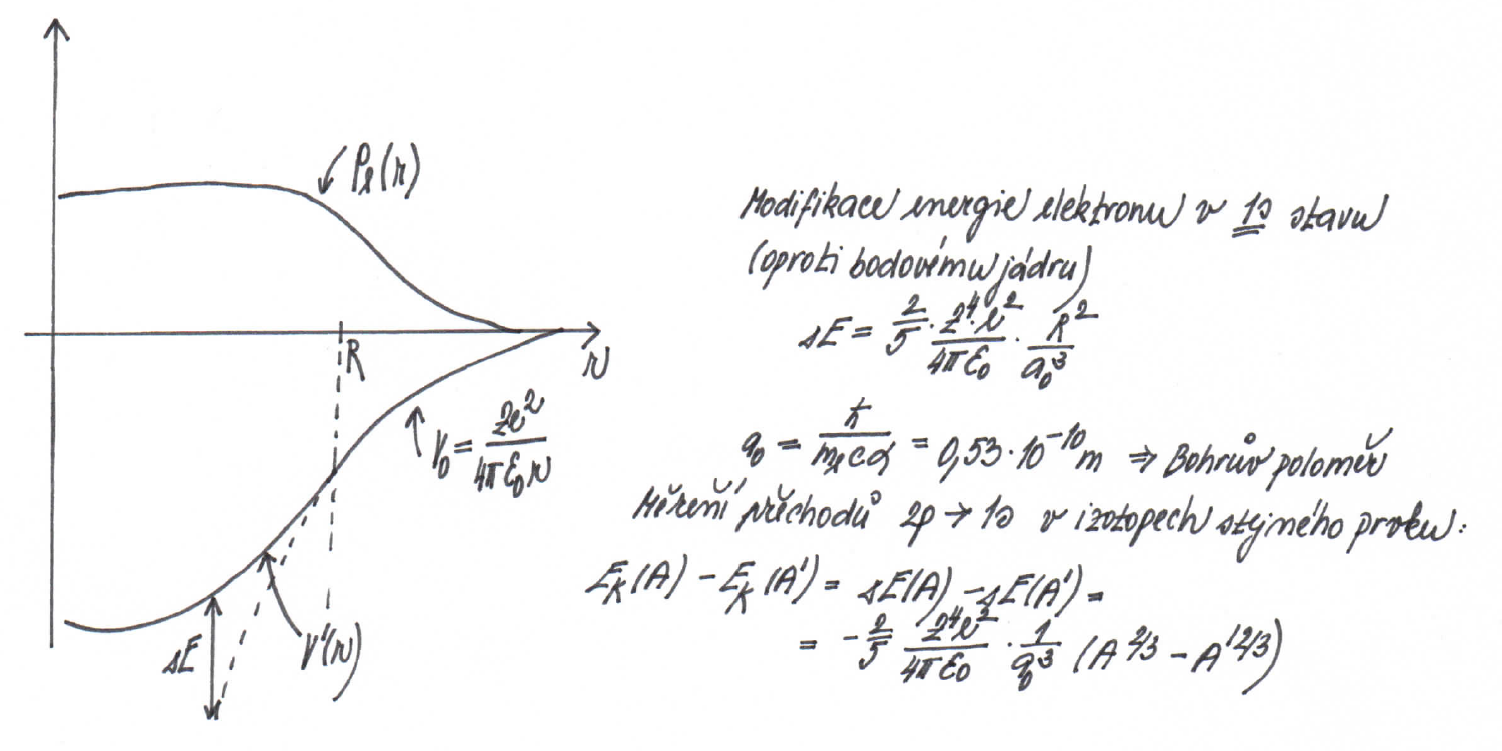 Pₑ(r)
R
r
V₀ = Ze²/4πε₀r
ΔE
V'(r)
Modifikace energie elektronu v 1s stavu
(oproti bodovému jádru)
ΔE = 2/5 · Z⁴·e²/4πε₀ · R²/a₀³
a₀ = ħ/mₑcα = 0,53·10⁻¹⁰ m ⇒ Bohrův poloměr
Měření přechodů 2p → 1s v izotopech stejného prvku:
E_K(A) − E_K(A') = ΔE(A) − ΔE(A') =
= −2/5 Z⁴e²/4πε₀ · 1/a₀³ (A^2/3 − A'^2/3)